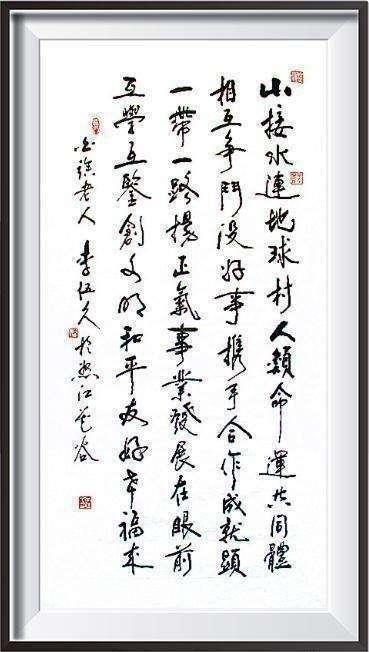 山接水連地球村人類命運共同體
相互爭鬥没好事携手合作成就顯
一帶一路揚正氣事業發展在眼前
互學互鑒創文明和平友好幸福来
老人 李伍久於江